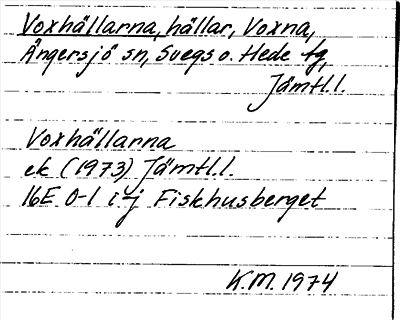 Voxhällarna, hällar, Voxna,
Ängersjö sn, Svegs o. Hede tg,
Jämtl.l.
Voxhällarna
ek (1973) Jämtl.l.
16E 0-1 i-j Fiskhusberget
K.M. 1974